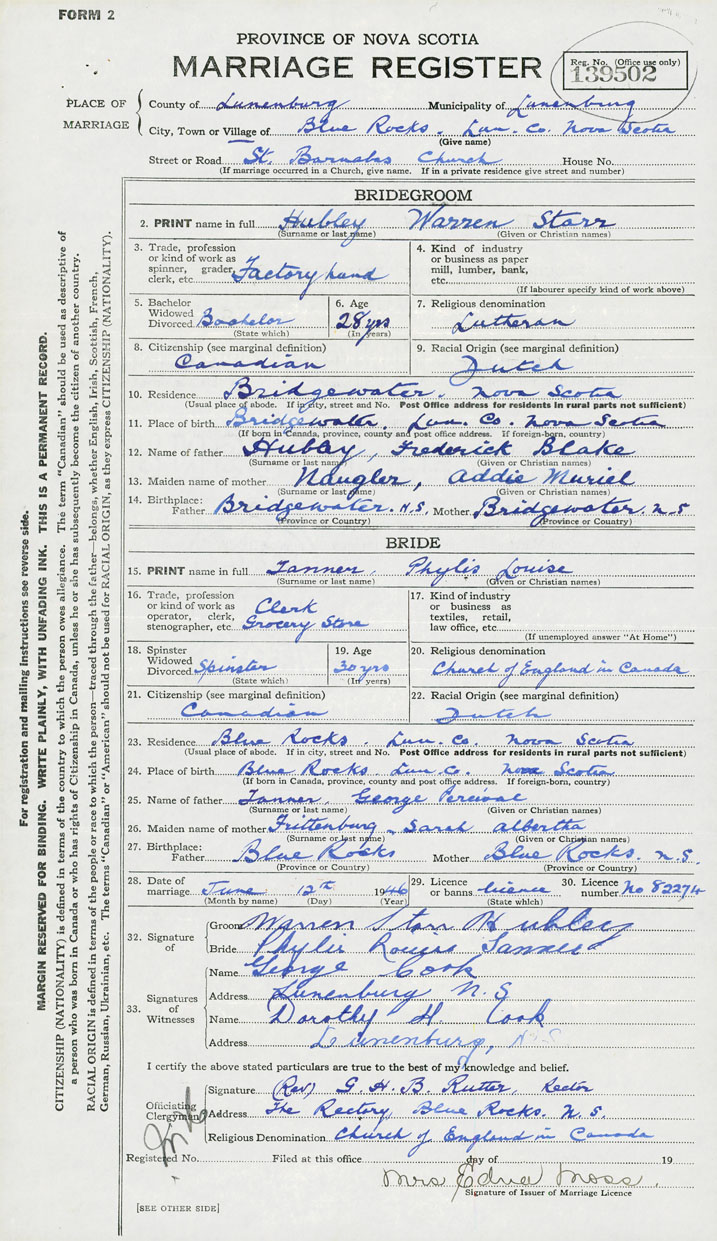 FORM 2
PROVINCE OF NOVA SCOTIA
MARRIAGE REGISTER
Reg. No. (Office use only)
139502
PLACE OF MARRIAGE
County of Lunenburg Municipality of Lunenburg
City, Town or Village of Blue Rocks. Lun. Co. Nova Scotia
(Give name)
Street or Road St. Barnabas Church House No.
(If marriage occurred in a Church, give name. If in a private residence give street and number)
BRIDEGROOM
2. PRINT name in full Hubley Warren Starr
(Surname or last name) (Given or Christian names)
3. Trade, profession or kind of work as spinner, grader, clerk, etc. Factory hand
4. Kind of industry or business as paper mill, lumber, bank, etc.
(If labourer specify kind of work above)
5. Bachelor Widowed Divorced Bachelor
(State which)
6. Age 28 yrs
(In years)
7. Religious denomination
Lutheran
8. Citizenship (see marginal definition)
Canadian
9. Racial Origin (see marginal definition)
Dutch
10. Residence Bridgewater. Nova Scotia
(Usual place of abode. If in city, street and No. Post Office address for residents in rural parts not sufficient)
11. Place of birth Bridgewater, Lun. Co. Nova Scotia
(If born in Canada, province, county and post office address. If foreign-born, country)
12. Name of father Hubley, Frederick Blake
(Surname or last name) (Given or Christian names)
13. Maiden name of mother Naugler, Addie Muriel
(Surname or last name) (Given or Christian names)
14. Birthplace: Father Bridgewater. N.S. Mother Bridgewater. N.S
(Province or Country) (Province or Country)
BRIDE
15. PRINT name in full Tanner Phylis Louise
(Surname or last name) (Given or Christian names)
16. Trade, profession or kind of work as operator, clerk, stenographer, etc. Clerk Grocery Store
17. Kind of industry or business as textiles, retail, law office, etc.
(If unemployed answer "At Home")
18. Spinster Widowed Divorced Spinster
(State which)
19. Age 30 yrs
(In years)
20. Religious denomination
Church of England in Canada
21. Citizenship (see marginal definition)
Canadian
22. Racial Origin (see marginal definition)
Dutch
23. Residence Blue Rocks Lun. Co. Nova Scotia
(Usual place of abode. If in city, street and No. Post Office address for residents in rural parts not sufficient)
24. Place of birth Blue Rocks Lun Co. Nova Scotia
(If born in Canada, province, county and post office address. If foreign-born, country)
25. Name of father Tanner, George Percival
(Surname or last name) (Given or Christian names)
26. Maiden name of mother Frittenburg, Sarah Albertha
(Surname or last name) (Given or Christian names)
27. Birthplace: Father Blue Rocks Mother Blue Rocks. N.S.
(Province or Country) (Province or Country)
28. Date of marriage June 12th 1946
(Month by name) (Day) (Year)
29. Licence or banns licence
(State which)
30. Licence number No 82274
32. Signature of
Groom Warren Starr Hubley
Bride Phylis Louise Tanner
33. Signatures of Witnesses
Name George Cook
Address Lunenburg N.S
Name Dorothy H Cook
Address Lunenburg, N.S
I certify the above stated particulars are true to the best of my knowledge and belief.
Officiating Clergyman
Signature (Rev) G. H. B. Rutter, Rector
Address The Rectory, Blue Rocks. N.S.
Religious Denomination Church of England in Canada
Registered No. Filed at this office day of 19
Mrs Edna Moss.
Signature of Issuer of Marriage Licence
[SEE OTHER SIDE]
For registration and mailing instructions see reverse side.
MARGIN RESERVED FOR BINDING. WRITE PLAINLY, WITH UNFADING INK. THIS IS A PERMANENT RECORD.
CITIZENSHIP (NATIONALITY) is defined in terms of the country to which the person owes allegiance. The term "Canadian" should be used as descriptive of
a person who was born in Canada or who has rights of Citizenship in Canada, unless he or she has subsequently become the citizen of another country.
RACIAL ORIGIN is defined in terms of the people or race to which the person—traced through the father—belongs, whether English, Irish, Scottish, French,
German, Russian, Ukrainian, etc. The terms "Canadian" or "American" should not be used for RACIAL ORIGIN, as they express CITIZENSHIP (NATIONALITY).